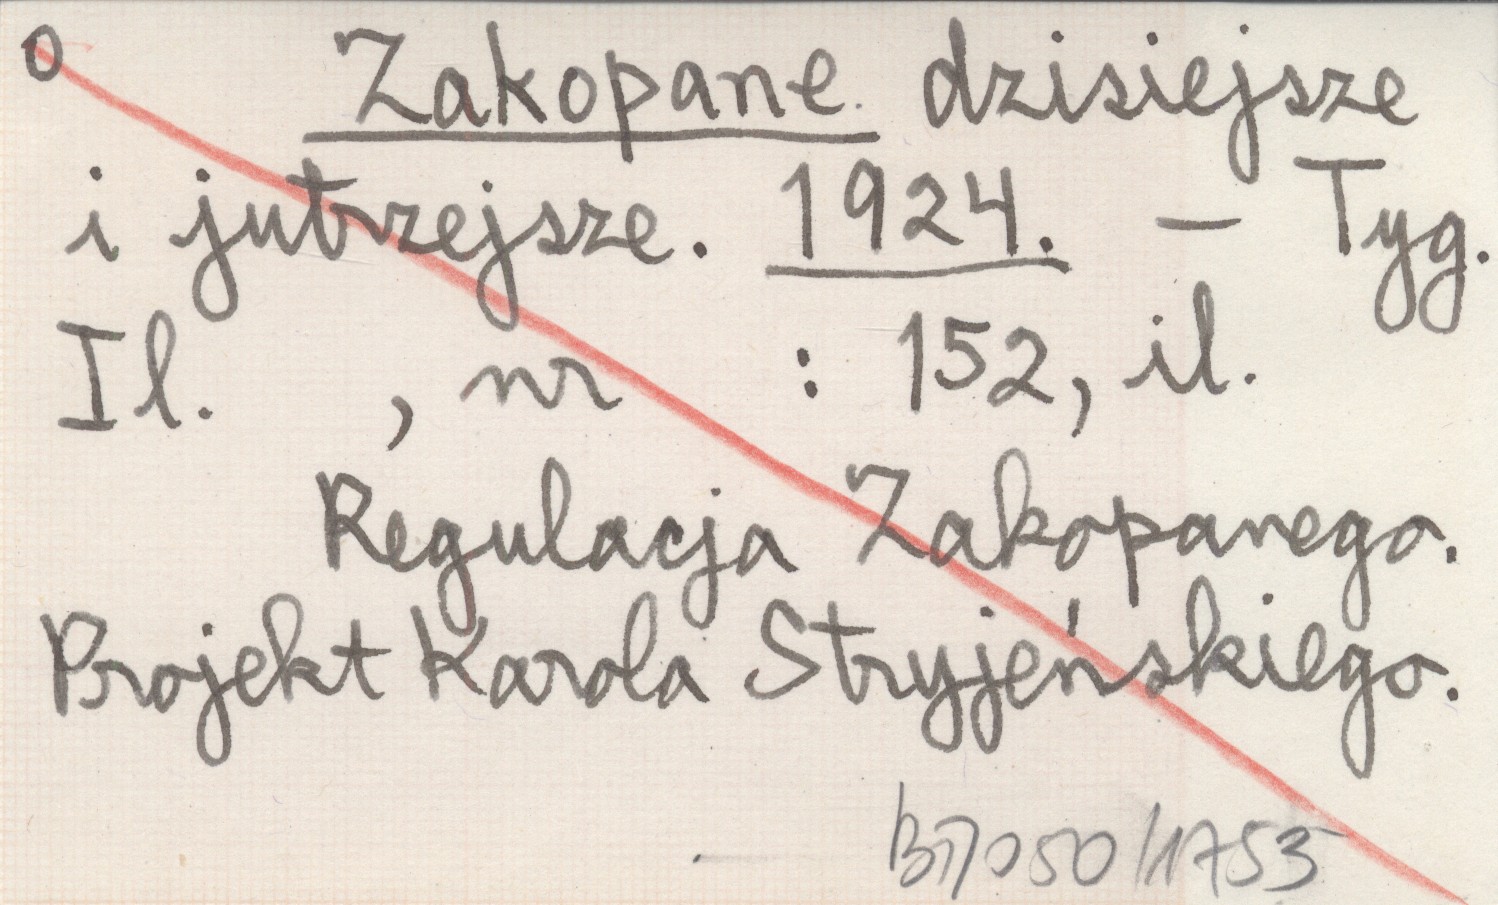 0 Zakopane dzisiejsze
i jutrzejsze. 1924. – Tyg.
Il. , nr : 152, il.
Regulacja Zakopanego.
Projekt Karola Stryjeńskiego.
050/1753